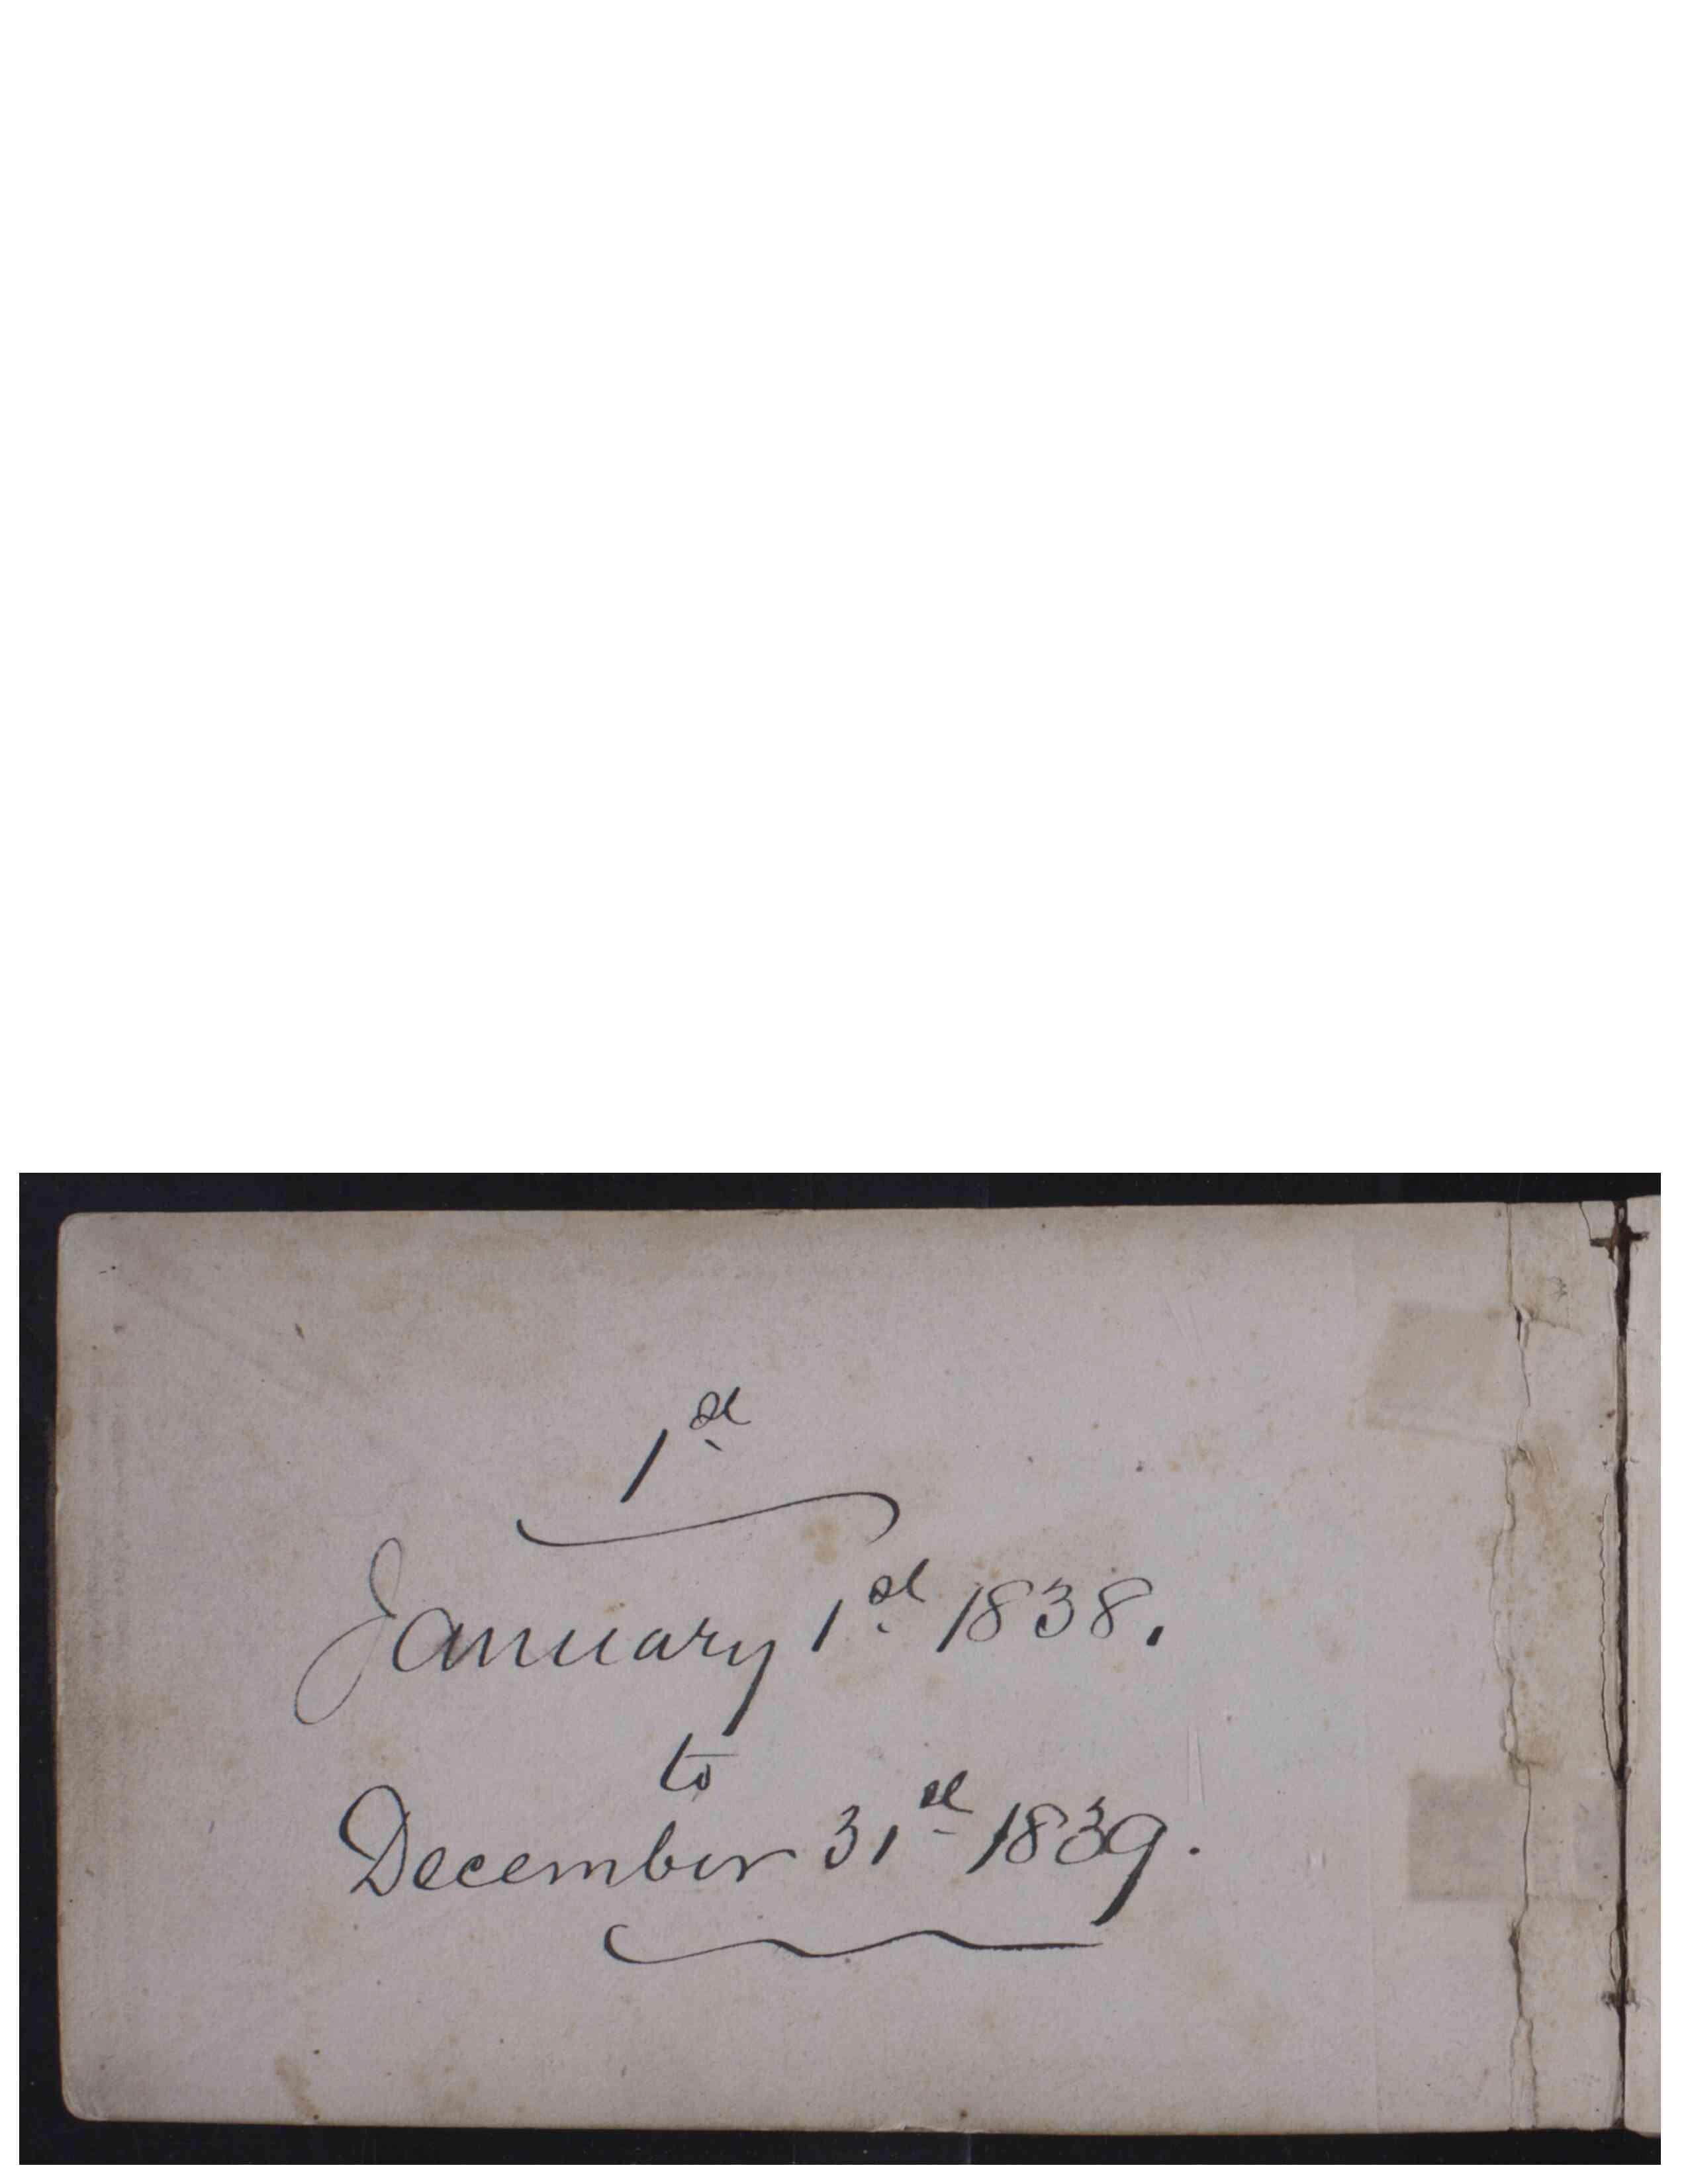 1st
January 1st 1838.
to
December 31st 1839.